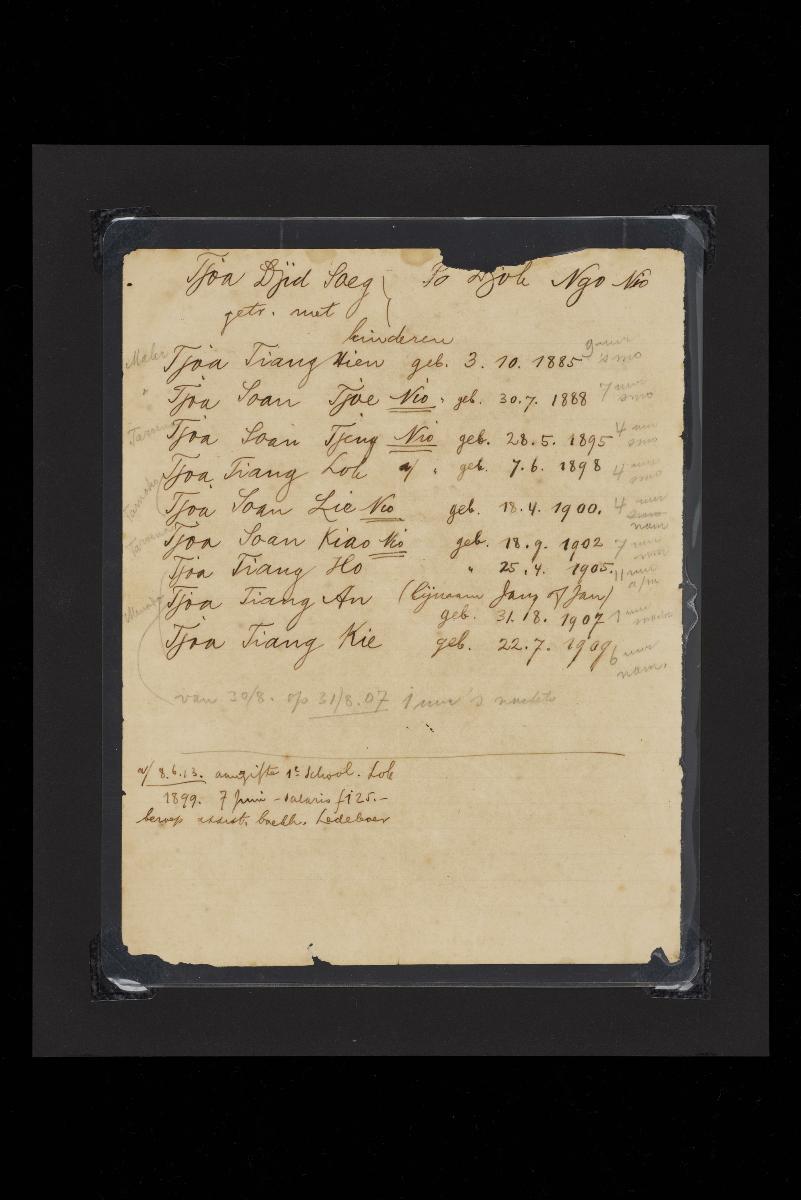 Tjoa Djid Saeg } Po Djok Ngo Nio
getr. met
kinderen
Tjoa Tiang Hien geb. 3. 10. 1885 9 uur
Tjoa Soan Tjoe Nio geb. 30.7. 1888 7 uur
Tjoa Soan Tjeng Nio geb. 28.5. 1895 4 uur
Tjoa Tiang Lok a/ " geb. 7.6. 1898 4 uur
Tjoa Soan Lie Nio geb. 18.4. 1900. 4 uur nam
Tjoa Soan Kiao Nio geb. 18.9. 1902 7 uur
Tjoa Tiang Ho " 25.4. 1905. 11 uur
Tjoa Tiang An (bijnaam Jang of Jan)
geb. 31.8. 1907 1 uur
Tjoa Tiang Kie geb. 22.7. 1909 6 uur nam.
van 30/8. op 31/8.07 1 uur 's nachts
a/ 8.6.13. aangifte 1e School. Lok
1899. 7 Juni - salaris f 125.-
beroep assist. boekh. Ledeboer